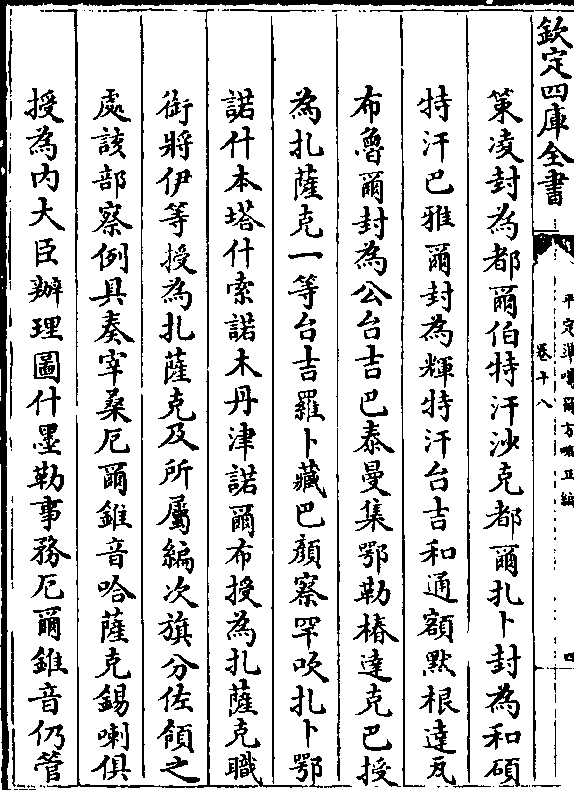 欽定四庫全書
平定準噶爾方略正編
卷十八
四
策凌封為都爾伯特汗沙克都爾扎卜封為和碩
特汗巴雅爾封為輝特汗台吉和通額黙根達瓦
布魯爾封為公台吉巴泰曼集鄂勒椿達克巴授
為扎薩克一等台吉羅卜藏巴顔察罕吹扎卜鄂
諾什本塔什索諾木丹津諾爾布授為扎薩克職
銜將伊等授為扎薩克及所屬編次旗分佐領之
處該部察例具奏宰桑厄爾錐音哈薩克錫喇俱
授為内大臣辦理圖什墨勒事務厄爾錐音仍管